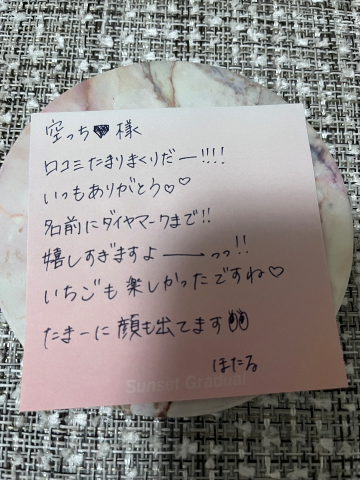 空っち♥様
口コミたまりまくりだー!!!!
いつもありがとう♡♡
名前にダイヤマークまで!!
嬉しすぎますよ――っっ!!
いちごも楽しかったですね♡
たまーに顔も出てます👀
ほたる
Sunset Gradual